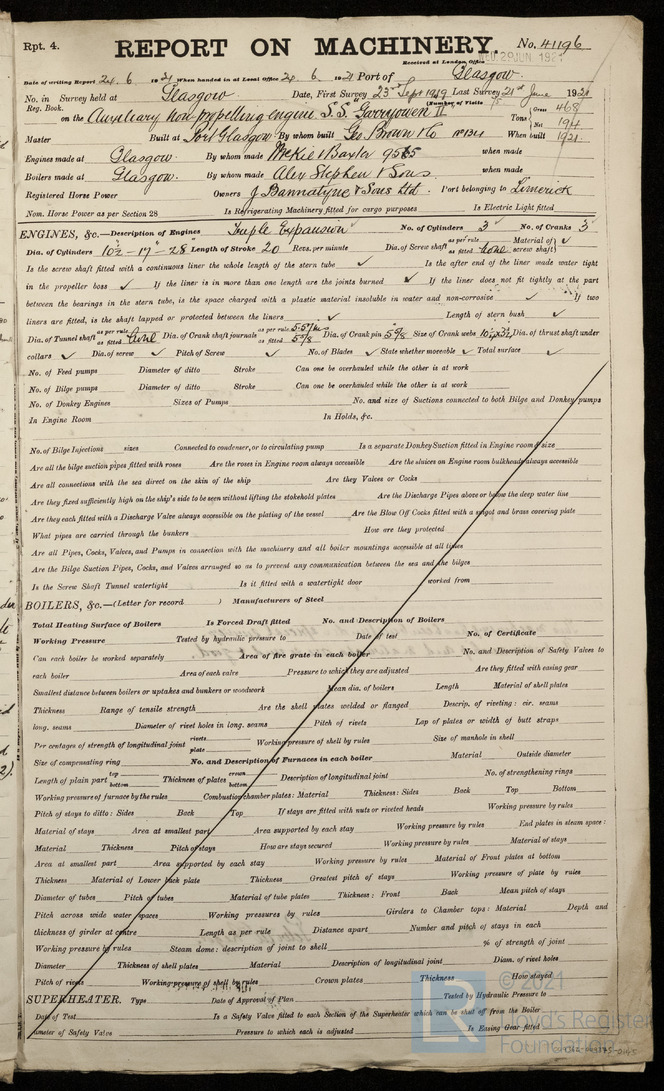 Rpt. 4.
REPORT ON MACHINERY.
No. 41196
Received at London Office WED. 29 JUN. 1921
Date of writing Report 24. 6 1921 When handed in at Local Office 24. 6. 1921 Port of Glasgow.
No. in Survey held at Glasgow Date, First Survey 23rd Sept 1919 Last Survey 21st June 1921
Reg. Book. (Number of Visits
on the Auxiliary non-propelling engine S.S. "Garryowen II" Tons Gross 468 Net 194
Master Built at Port Glasgow By whom built Geo. Brown & Co No 134 When built 1921.
Engines made at Glasgow By whom made McKie & Baxter 9565 when made
Boilers made at Glasgow. By whom made Alex Stephen & Sons when made
Registered Horse Power Owners J Bannatyne & Sons Ltd. Port belonging to Limerick
Nom. Horse Power as per Section 28 Is Refrigerating Machinery fitted for cargo purposes Is Electric Light fitted
ENGINES, &c.—Description of Engines Triple Expansion No. of Cylinders 3 No. of Cranks 3
Dia. of Cylinders 10½ - 17" - 28" Length of Stroke 20 Revs. per minute Dia. of Screw shaft as per rule as fitted none Material of screw shaft
Is the screw shaft fitted with a continuous liner the whole length of the stern tube Is the after end of the liner made water tight
in the propeller boss If the liner is in more than one length are the joints burned If the liner does not fit tightly at the part
between the bearings in the stern tube, is the space charged with a plastic material insoluble in water and non-corrosive If two
liners are fitted, is the shaft lapped or protected between the liners Length of stern bush
Dia. of Tunnel shaft as per rule as fitted none Dia. of Crank shaft journals as per rule as fitted 5⅝ Dia. of Crank pin 5⅝ Size of Crank webs Dia. of thrust shaft under
collars Dia. of screw Pitch of Screw No. of Blades State whether moveable Total surface
No. of Feed pumps Diameter of ditto Stroke Can one be overhauled while the other is at work
No. of Bilge pumps Diameter of ditto Stroke Can one be overhauled while the other is at work
No. of Donkey Engines Sizes of Pumps No. and size of Suctions connected to both Bilge and Donkey pumps
In Engine Room In Holds, &c.
No. of Bilge Injections sizes Connected to condenser, or to circulating pump Is a separate Donkey Suction fitted in Engine room & size
Are all the bilge suction pipes fitted with roses Are the roses in Engine room always accessible Are the sluices on Engine room bulkheads always accessible
Are all connections with the sea direct on the skin of the ship Are they Valves or Cocks
Are they fixed sufficiently high on the ship's side to be seen without lifting the stokehold plates Are the Discharge Pipes above or below the deep water line
Are they each fitted with a Discharge Valve always accessible on the plating of the vessel Are the Blow Off Cocks fitted with a spigot and brass covering plate
What pipes are carried through the bunkers How are they protected
Are all Pipes, Cocks, Valves, and Pumps in connection with the machinery and all boiler mountings accessible at all times
Are the Bilge Suction Pipes, Cocks, and Valves arranged so as to prevent any communication between the sea and the bilges
Is the Screw Shaft Tunnel watertight Is it fitted with a watertight door worked from
BOILERS, &c.—(Letter for record ) Manufacturers of Steel
Total Heating Surface of Boilers Is Forced Draft fitted No. and Description of Boilers
Working Pressure Tested by hydraulic pressure to Date of test No. of Certificate
Can each boiler be worked separately Area of fire grate in each boiler No. and Description of Safety Valves to
each boiler Area of each valve Pressure to which they are adjusted Are they fitted with easing gear
Smallest distance between boilers or uptakes and bunkers or woodwork Mean dia. of boilers Length Material of shell plates
Thickness Range of tensile strength Are the shell plates welded or flanged Descrip. of riveting: cir. seams
long. seams Diameter of rivet holes in long. seams Pitch of rivets Lap of plates or width of butt straps
Per centages of strength of longitudinal joint rivets plate Working pressure of shell by rules Size of manhole in shell
Size of compensating ring No. and Description of Furnaces in each boiler Material Outside diameter
Length of plain part top bottom Thickness of plates crown bottom Description of longitudinal joint No. of strengthening rings
Working pressure of furnace by the rules Combustion chamber plates: Material Thickness: Sides Back Top Bottom
Pitch of stays to ditto: Sides Back Top If stays are fitted with nuts or riveted heads Working pressure by rules
Material of stays Area at smallest part Area supported by each stay Working pressure by rules End plates in steam space:
Material Thickness Pitch of stays How are stays secured Working pressure by rules Material of stays
Area at smallest part Area supported by each stay Working pressure by rules Material of Front plates at bottom
Thickness Material of Lower back plate Thickness Greatest pitch of stays Working pressure of plate by rules
Diameter of tubes Pitch of tubes Material of tube plates Thickness: Front Back Mean pitch of stays
Pitch across wide water spaces Working pressures by rules Girders to Chamber tops: Material Depth and
thickness of girder at centre Length as per rule Distance apart Number and pitch of stays in each
Working pressure by rules Steam dome: description of joint to shell % of strength of joint
Diameter Thickness of shell plates Material Description of longitudinal joint Diam. of rivet holes
Pitch of rivets Working pressure of shell by rules Crown plates Thickness How stayed
SUPERHEATER. Type Date of Approval of Plan Tested by Hydraulic Pressure to
Date of Test Is a Safety Valve fitted to each Section of the Superheater which can be shut off from the Boiler
Diameter of Safety Valve Pressure to which each is adjusted Is Easing Gear fitted
© 2021
Lloyd's Register
Foundation